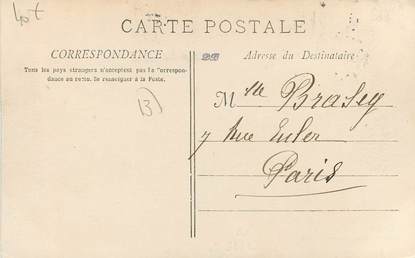 40 +
CARTE POSTALE
CORRESPONDANCE
Tous les pays étrangers n'acceptent pas la Correspon-
dance au recto. Se renseigner à la Poste.
Adresse du Destinataire
B)
Mlle Brasey
7 Rue Euler
Paris